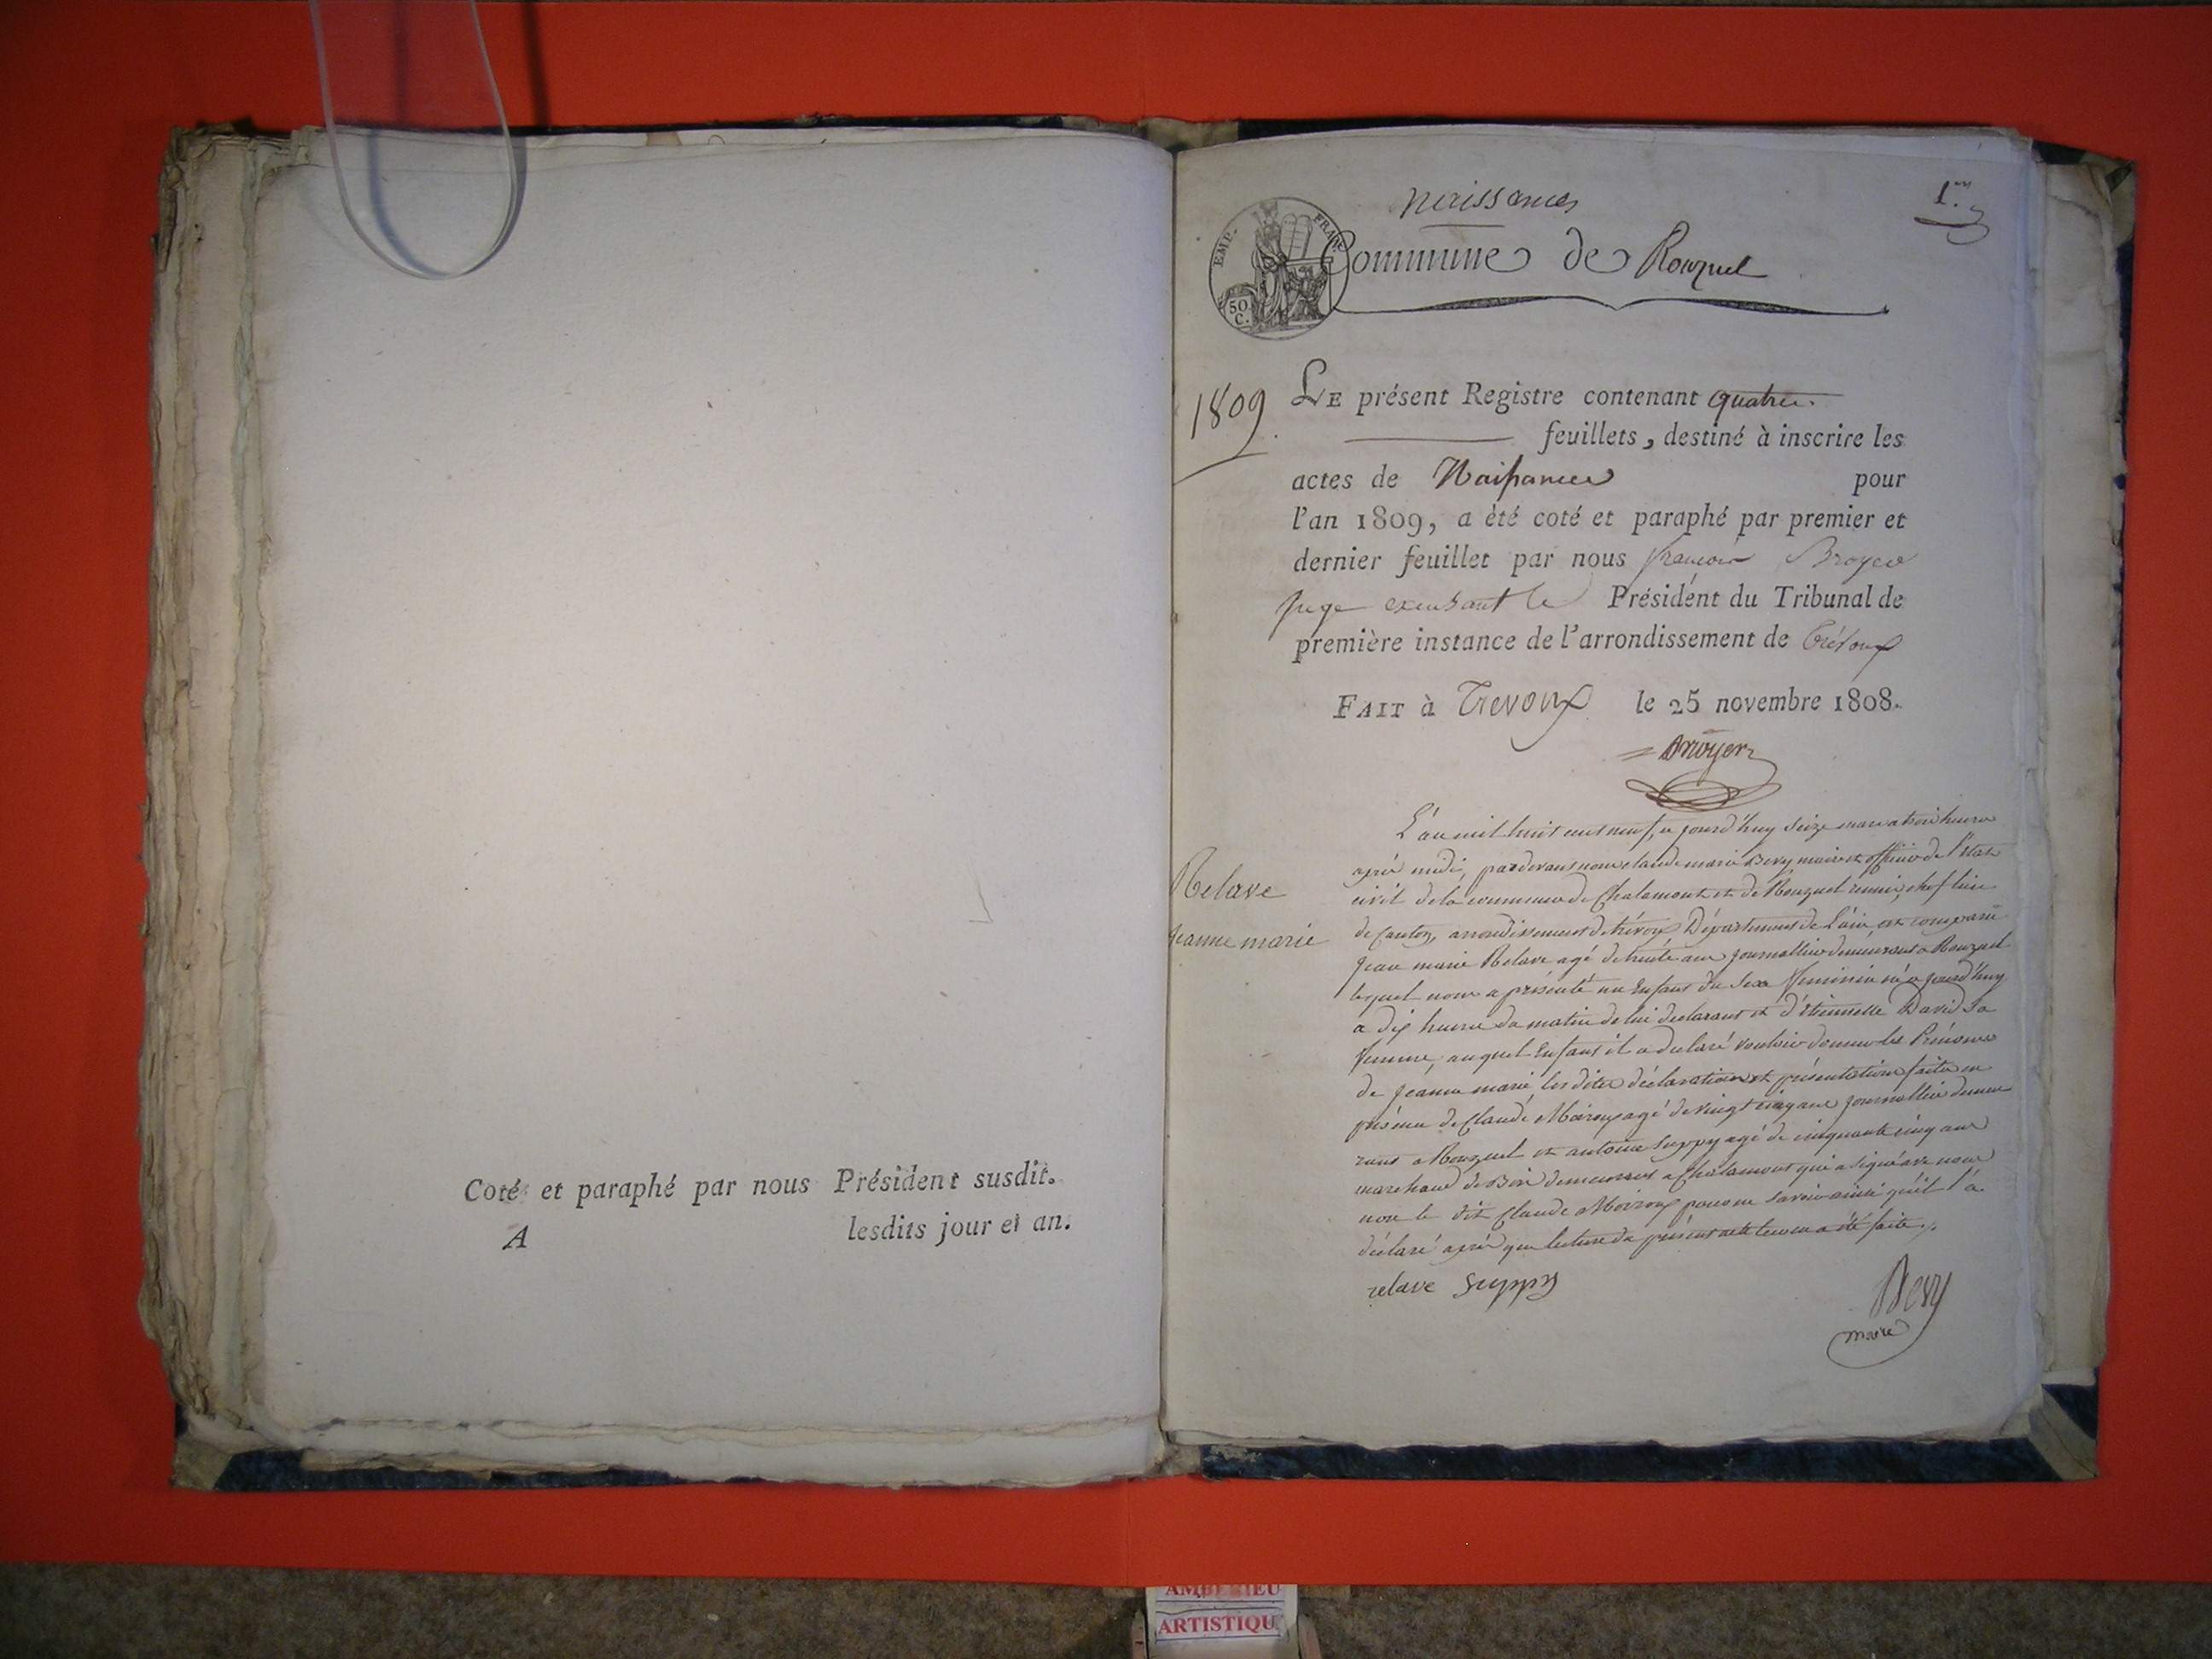 Coté et paraphé par nous Président susdit.
A lesdits jour et an.
1.er
Naissances
EMP. FRAN.
50 C.
Commune de Rouzuel
1809
LE présent Registre contenant quatre.
feuillets, destiné à inscrire les
actes de Naissances pour
l'an 1809, a été coté et paraphé par premier et
dernier feuillet par nous françois Broyer
Juge exerçant le Président du Tribunal de
première instance de l'arrondissement de Trévoux
FAIT à Trevoux le 25 novembre 1808.
Broyer
Relave
jeanne marie
L'an mil huit cent neuf, a jourd'huy Seize mars a trois heures
après midi, pardevant nous claude marie Bevy maire et officier de l'état
civil de la commune de Chalamont et de Rouzuel reunie, chef lieu
de Canton, arrondissement de trévoux Département de L'ain est comparu
jean marie Relave agé de trente ans journallier demeurant a Rouzuel
lequel nous a présenté un Enfant du Sexe féminin né a jourd'huy
a dix heures du matin de lui declarant et d'étiennette David Sa
femme, auquel Enfant il a declaré vouloir donner les Prénoms
de jeanne marie, les dites déclaration et présentation faites en
présence de Claude Moiroux agé de vingt cinq ans journallier demeu
rant a Rouzuel et antoine Suppy agé de cinquante cinq ans
marchand de Bois demeurant a Chalamont qui a signé avec nous
non le dit Claude Moiroux pour ne savoir ainsi qu'il l'a
déclaré après que lecture du présent acte leur a été faite.
relave Suppy
Bevy
maire
ARTISTIQU